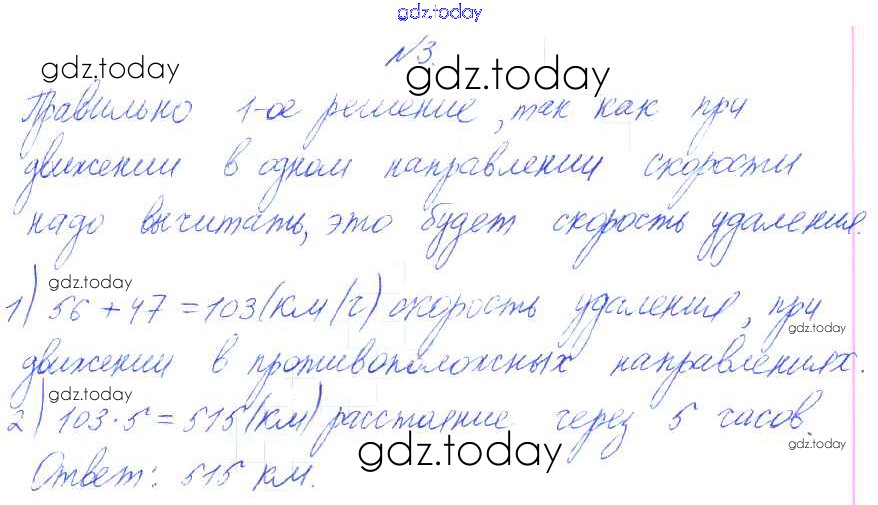 gdz.today
№3.
gdz.today
gdz.today
Правильно 1-ое решение, так как при
движении в одном направлении скорости
надо вычитать, это будет скорость удаления.
gdz.today
1) 56 + 47 = 103 (км/ч) скорость удаления, при
gdz.today
движении в противоположных направлениях.
gdz.today
2) 103 · 5 = 515 (км) расстояние через 5 часов.
gdz.today
gdz.today
Ответ: 515 км.